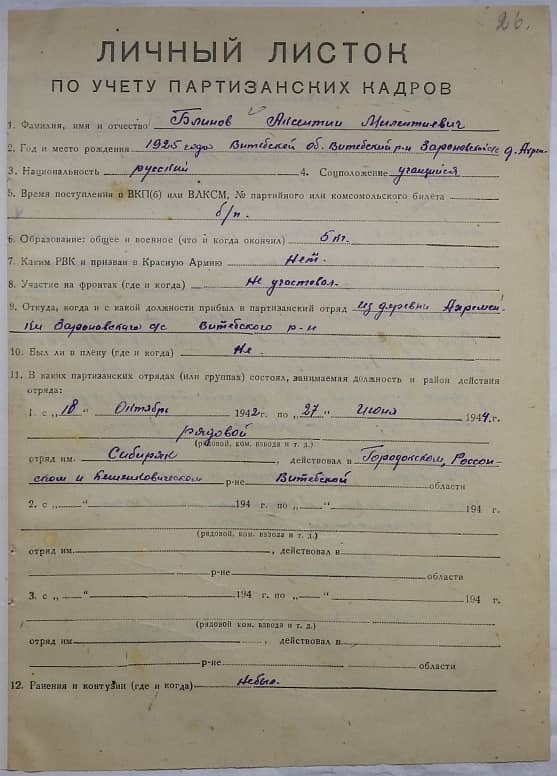 26.
ЛИЧНЫЙ ЛИСТОК
ПО УЧЕТУ ПАРТИЗАНСКИХ КАДРОВ
1. Фамилия, имя и отчество Блинов Аксентий Милентиевич
2. Год и место рождения 1925 года Витебской об. Витебский р-н Зароновский с/с д.
3. Национальность русский 4. Соцположение учащийся
5. Время поступления в ВКП(б) или ВЛКСМ, № партийного или комсомольского билета
б/п.
6. Образование: общее и военное (что и когда окончил) 5 кл.
7. Каким РВК и призван в Красную Армию Нет.
8. Участие на фронтах (где и когда) Не участовал.
9. Откуда, когда и с какой должности прибыл в партизанский отряд из деревни Ахремен-
ки Зароновского с/с Витебского р-н
10. Был ли в плену (где и когда) Не.
11. В каких партизанских отрядах (или группах) состоял, занимаемая должность и район действия
отряда:
1. с „18“ Октября 1942 г. по „27“ Июня 1944 г.
рядовой
(рядовой, ком. взвода и т. д.)
отряд им. Сибиряк, действовал в Городокском, Россон-
ском и Бешенковическом р-не Витебской области
2. с „ “ 194 г. по „ “ 194 г.
(рядовой, ком. взвода и т. д.)
отряд им. , действовал в
р-не области
3. с „ “ 194 г. по „ “ 194 г.
(рядовой, ком. взвода и т. д.)
отряд им. , действовал в
р-не области
12. Ранения и контузии (где и когда) Небыл.